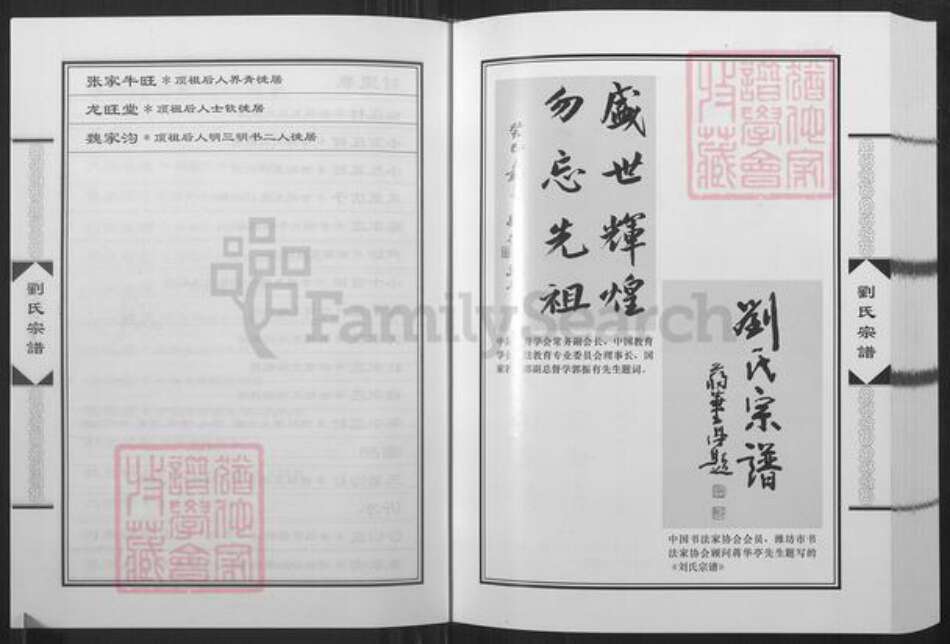 张家牛旺*顶祖后人界青徙居
龙旺堂*顶祖后人士钦徙居
魏家沟*顶祖后人明三明书二人徙居
劉氏宗譜
盛世輝煌
勿忘先祖
学会常务副会长，中国教育
法教育专业委员会理事长，国
部副总督学郭振有先生题词。
劉氏宗譜
蒋華亭題
中国书法家协会会员，潍坊市书
法家协会顾问蒋华亭先生题写的
《刘氏宗谱》
劉氏宗譜
FamilySearch
譜學會
收藏
譜學會
收藏